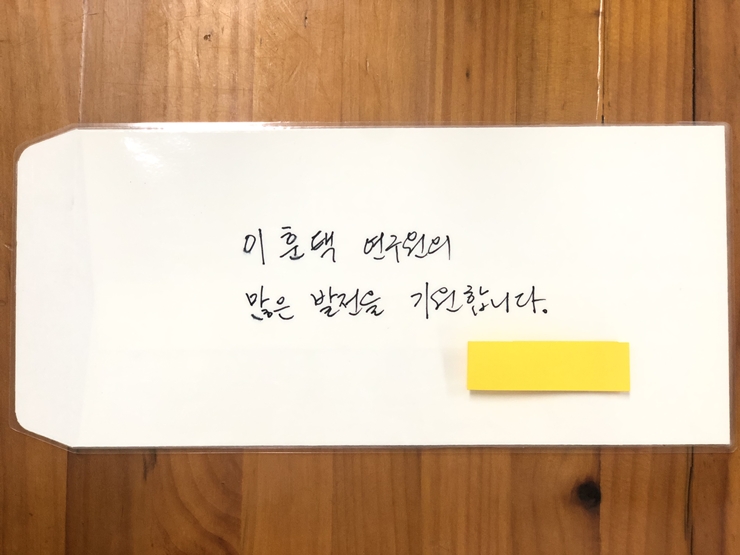 이훈택 연구원의
많은 발전을 기원합니다.